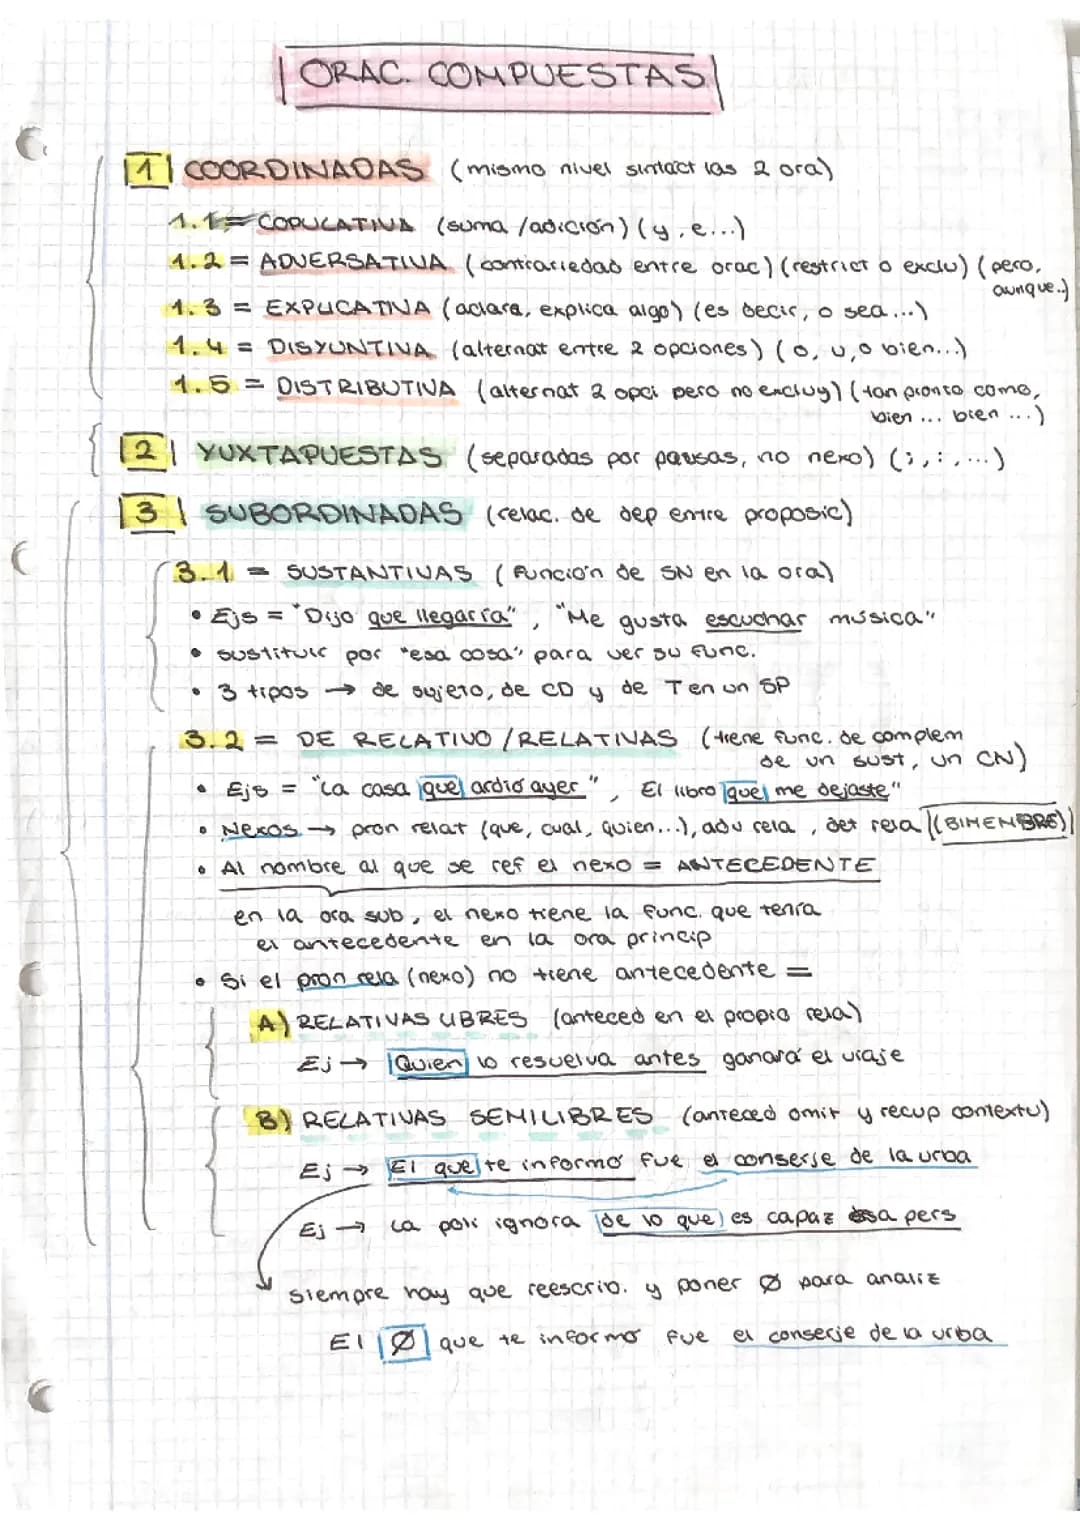 ORAC. COMPUESTAS
1 COORDINADAS (mismo nivel sintact las 2 ora)
1.1 = COPULATIVA (suma /adición) (y, e...)
1.2 = ADVERSATIVA (contrariedad entre orac) (restrict o exclu) (pero,
aunque..)
1.3 = EXPLICATIVA (aclara, explica algo) (es decir, o sea...)
1.4 = DISYUNTIVA (alternat entre 2 opciones) (o, u, o bien...)
1.5 = DISTRIBUTIVA (alternat 2 opci pero no excluy) (tan pronto como,
bien ... bien ...)
2 YUXTAPUESTAS (separadas por pausas, no nexo) (; , : , ...)
3 SUBORDINADAS (relac. de dep entre proposic)
3.1 = SUSTANTIVAS (Función de SN en la ora)
• Ejs = "Dijo que llegaría", "Me gusta escuchar música"
• sustituir por "esa cosa" para ver su func.
• 3 tipos → de sujeto, de CD y de T en un SP
3.2 = DE RELATIVO / RELATIVAS (tiene func. de complem
de un sust, un CN)
• Ejs = "La casa que ardió ayer", El libro que me dejaste"
• Nexos → pron relat (que, cual, quien...), adv rela, det rela (BIMEMBRE)
• Al nombre al que se ref el nexo = ANTECEDENTE
en la ora sub, el nexo tiene la func. que tenía
el antecedente en la ora princip
• Si el pron rela (nexo) no tiene antecedente =
A) RELATIVAS LIBRES (anteced en el propio rela)
Ej → Quien lo resuelva antes ganará el viaje
B) RELATIVAS SEMILIBRES (anteced omit y recup contextu)
Ej → El que te informó fue el conserje de la urba
Ej → La poli ignora de lo que es capaz esa pers
siempre hay que reescrib. y poner Ø para analiz
El Ø que te informó fue el conserje de la urba